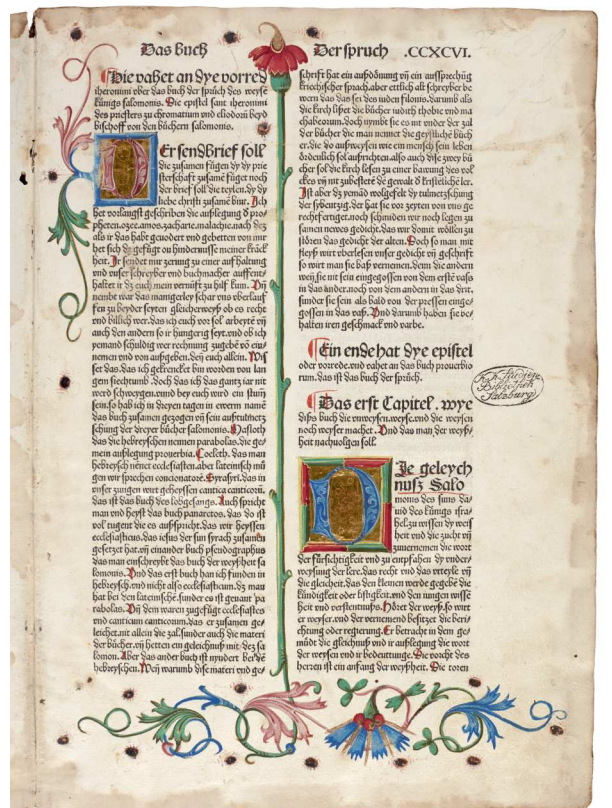 Das Buch
Der spruch .CCXCVI.
Hie vahet an dye vorred
iheronimi vber das buch der sprüch des weysen
künigs salomonis. Die epistel sant iheronimi
des priesters zu chromatium vnd eliodorum beyd
bischoff von den büchern salomonis.
Der sendbrief soll
die zusamen fügen dy dy prie
sterschafft zusamē füget noch
der brief soll die teylen. dy dy
liebe christi zusamē bint. Ich
het vorlangst geschriben die außlegung d pro
pheten. ozee. amos. zacharie. malachie. nach dez
als ir das habt gevodert vnd gebetten von mir
heit. Ir sendet mir zerung zu einer auffhaltung
vnd vnser schreyber vnd buchmacher auffent
haltet ir dz euch mein vernüfft zu hilf kum.
fen zu beyder seyten gleicherweyß ob es recht
vnd billich wer. das ich euch vor sol arbeyten vñ
auch den andern so ir hungerig seyt. vnd ob ich
yemand schuldig wer rechnung zugebē vō ein
nemen vnd von außgeben. deñ euch allein. Wis
set das. das ich gekrencket bin worden von lan
gem siechtumb. Doch das ich das gantz iar nit
werd schweygen. vnd bey euch wird ein stuṁ
sein. so hab ich in dreyen tagen in ewerm name
das buch zusamen gezogen
schung der dreyer bücher salomonis. Masloth
das die hebreyschen nennen parabolas. die ge
mein außlegung prouerbia. Coeleth. das man
hebreysch nēnet ecclesiasten. aber lateinisch mü
gen wir sprechen concionatorē. Syrasyri. das in
vnser zungen wirt geheyssen cantica canticorū.
das ist das buch des lobgesangs. Auch spricht
man vnd heyst das buch panaretos. das do ist
vol tugent die es außspricht. das wir heyssen
ecclesiasticus. das iesus der sun syrach zusamē
gesetzet hat. vñ einander buch pseudographus
das man einschreybt das buch der weyßheit sa
lomonis. Vnd das erst buch han ich funden in
hebreysch. vnd nicht also ecclesiasticum. dz man
hat bei den lateinischē. sunder es ist genant pa
rabolas. Vñ dem waren zugefügt ecclesiastes
vnd canticum canticorum. das er zusamen ge
leichet. nit allein die zal. sunder auch die materi
der bücher. vñ hetten ein geleichnuß mit. dez sa
lomon. Aber das ander buch ist nyndert bei dē
hebreyschen. Weñ warumb dise materi vnd ge
schrifft hat ein außdönung vñ ein aussprechūg
kriechischer sprach. aber ettlich alt schreyber be
wern das das sei des iuden filonis. darumb als
die kirch liset die bücher iudith thobie vnd ma
chabeorum. doch nymbt sie es nit vnder der zal
der bücher die man nennet die geystliche büch
er. die do außweysen wie ein mensch sein leben
ordenlich sol außrichten. also auch dise zwey bü
cher sol die kirch lesen zu einer bawung des vol
ckes vñ nit zubestetē dē gewalt d kristēliche ler.
Ist aber dz yemād wolgefelt dy tulmetzschung
der sybentzig. der hat sie vor zeyten von vns ge
rechtfertiget. noch schmiden wir noch legen zu
samen newes gedicht. das wir domit wöllen zu
stören das gedicht der alten. Doch so man mit
fleyß wirt vberlesen vnser gedicht vñ geschrifft
so wirt man sie baß vernemen. denn die andern
weñ sie nit sein eingegossen von dem erstē vaß
in das ander. noch von dem andern in das drit.
sunder sie sein als bald von der pressen einge
gossen in das vaß. Vnd darumb haben sie be
halten iren geschmack vnd varbe.
Ein ende hat dye epistel
oder vorrede. vnd vahet an das buch prouerbio
rum. das ist das buch der sprüch.
Das erst Capitel. wye
diß buch die vnweysen. weyse. vnd die weysen
noch weyser machet. Vnd das man der weyß
heit nachuolgen soll.
Die geleych
nusz Salo
monis des suns da
uid des künigs isra
hel. zu wissen dy weiß
heit vnd die zucht vñ
zuuernemen die wort
der fürsichtigkeit vnd zu empfahen dy vnder
weysung der lere. das recht vnd das vrteyle vñ
die gleicheit. das den kleinen werde gegebē die
kündigkeit oder listigkeit. vnd den iungen wisse
heit vnd verstentnuß. Höret der weyß. so wirt
er weyser. vnd der vernemend besitzet die beri
chtung oder regierung. Er betracht in dem ge
müt die gleichnuß vnd ir außlegung die wort
der weysen vnd ir bedeuttunge. Die vorcht des
herren ist ein anfang der weyßheit. Die toren
K. k. Studien
Bibliothek
Salzburg